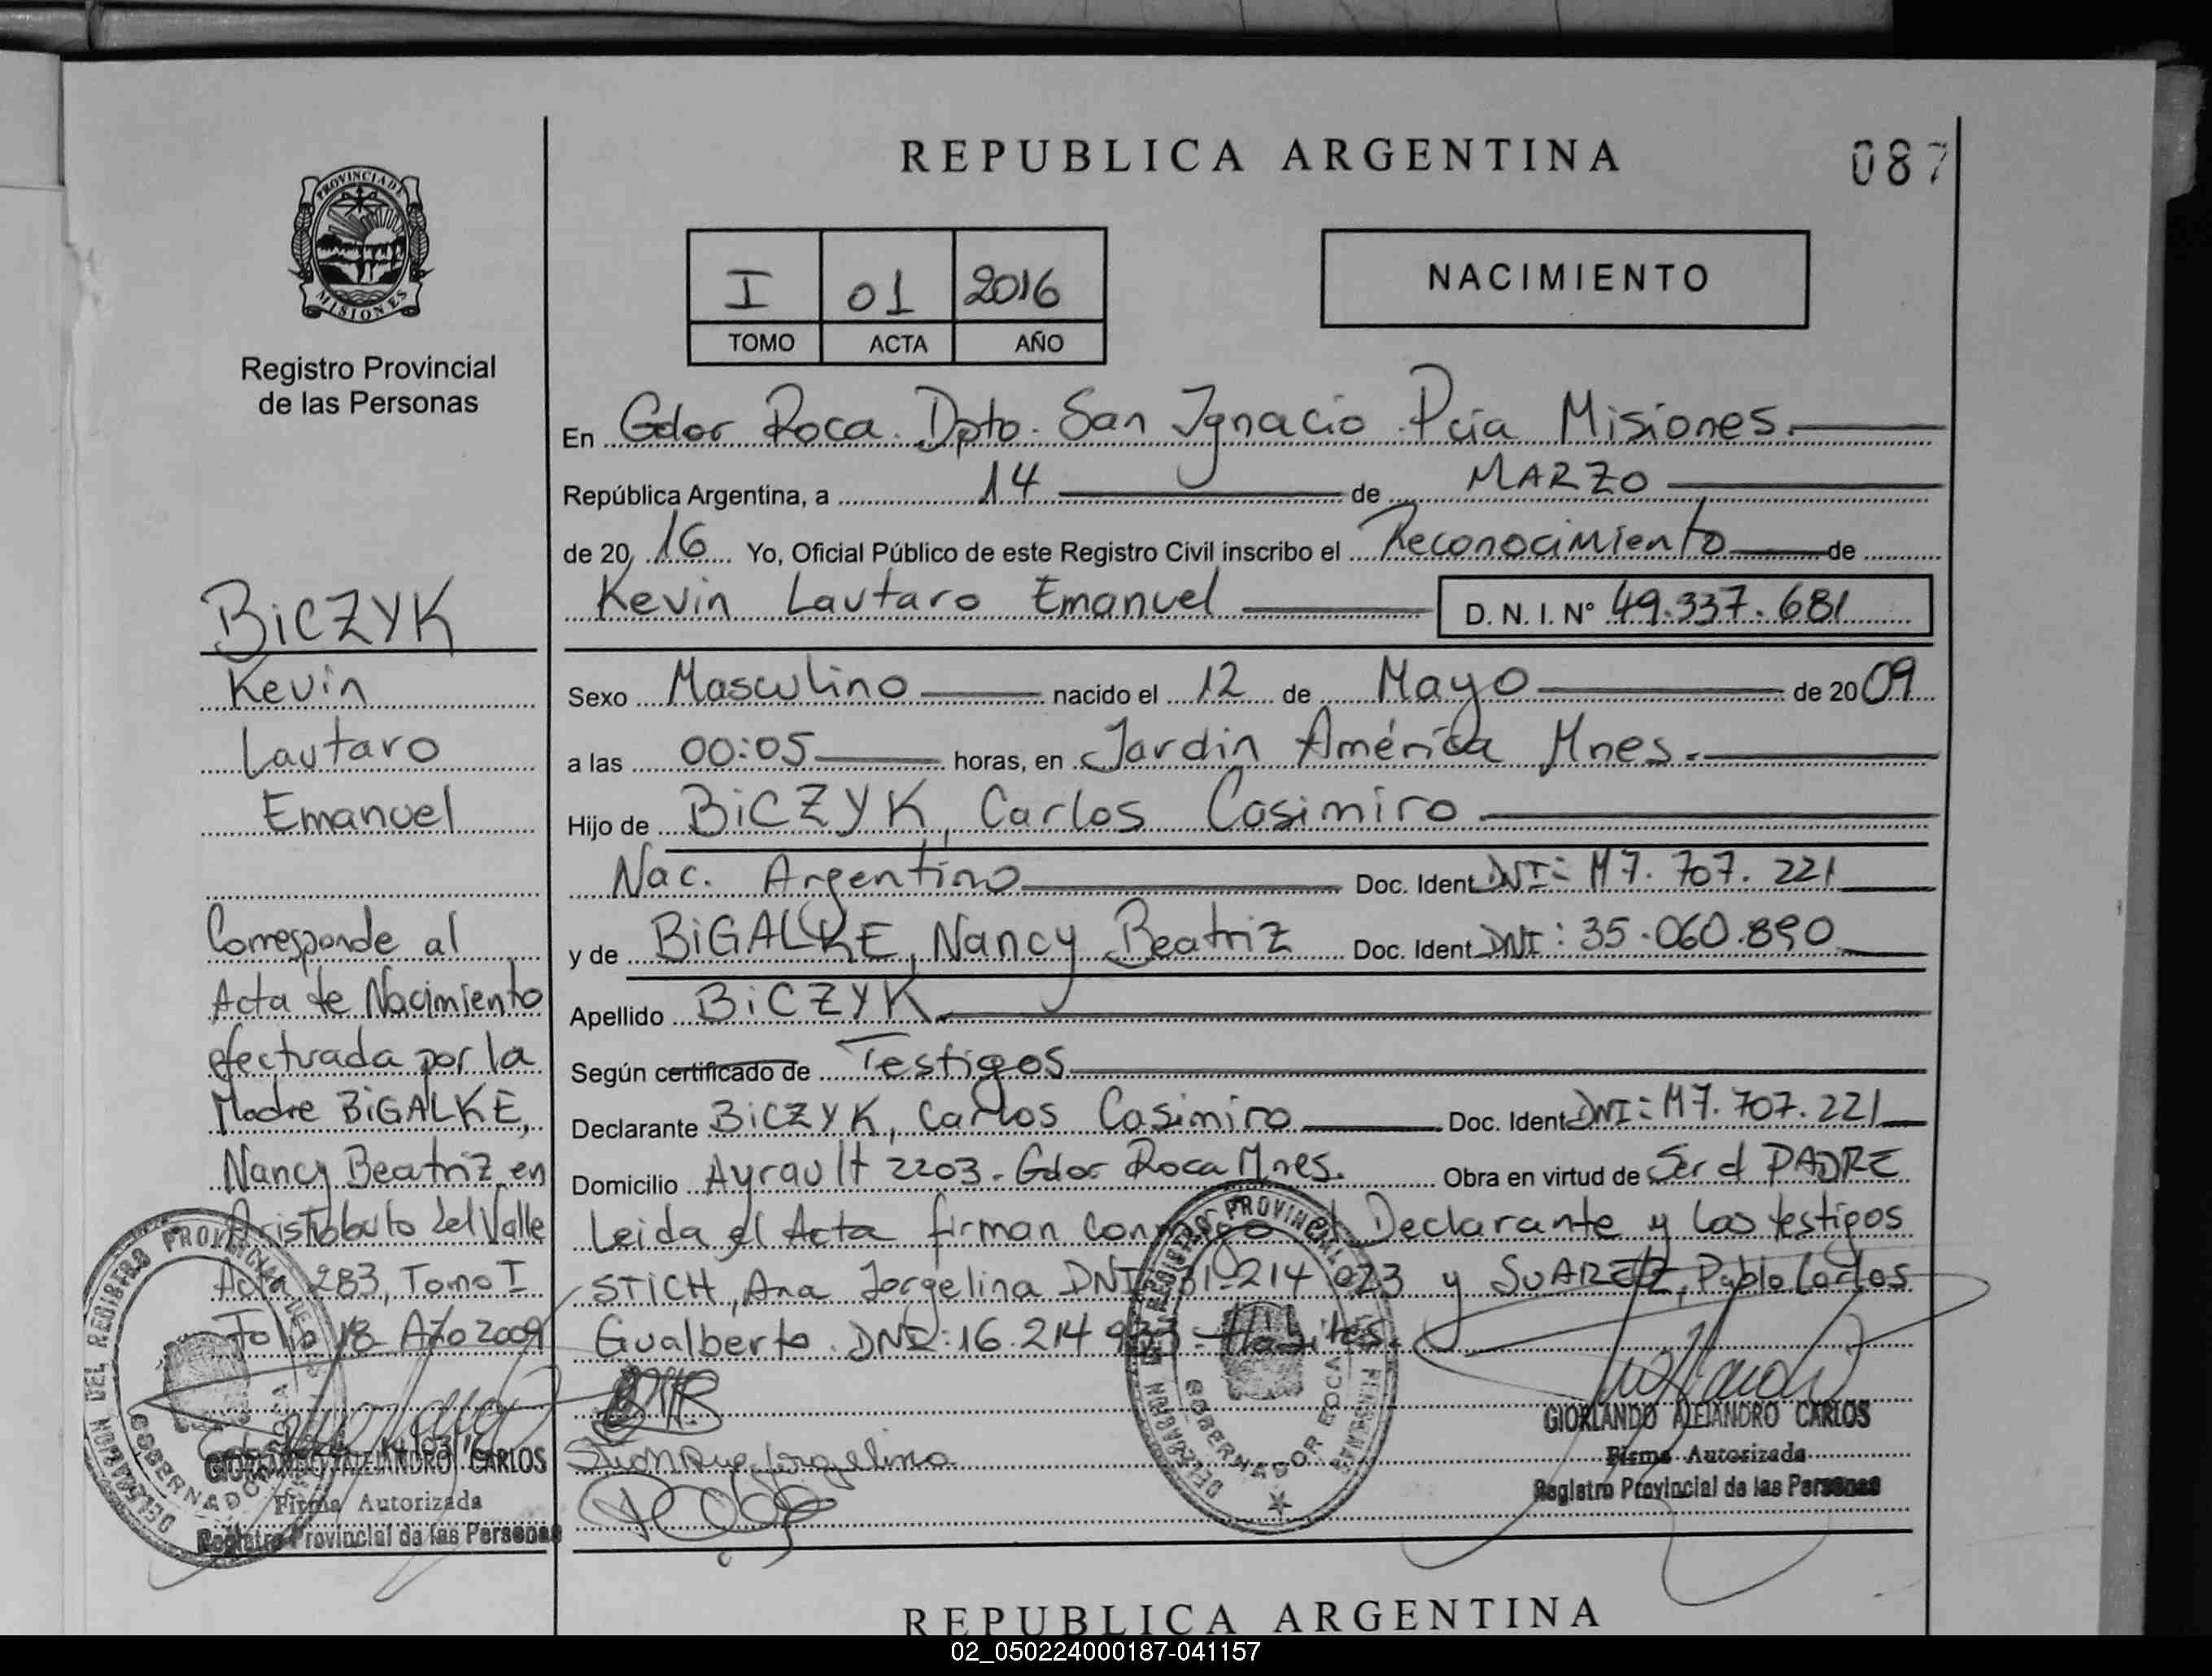 REPUBLICA ARGENTINA
087
PROVINCIA DE
MISIONES
Registro Provincial
de las Personas
I 01 2016
TOMO ACTA AÑO
NACIMIENTO
En Gdor Roca. Dpto. San Ignacio Pcia Misiones.
República Argentina, a 14 de MARZO
de 20 16 Yo, Oficial Público de este Registro Civil inscribo el Reconocimiento de
Kevin Lautaro Emanuel D. N. I. N° 49.337.681
Sexo Masculino nacido el 12 de Mayo de 20 09
a las 00:05 horas, en Jardin América Mnes.
Hijo de BiCZYK, Carlos Casimiro
Nac. Argentino Doc. Ident DNI: M7.707.221
y de BiGALKE, Nancy Beatriz Doc. Ident DNI: 35.060.890
Apellido BiCZYK.
Según certificado de Testigos
Declarante BiCZYK, Carlos Casimiro Doc. Ident DNI: M7.707.221
Domicilio Ayrault 2203. Gdor Roca Mnes. Obra en virtud de Ser el PADRE
Leida el Acta firman conmigo el Declarante y los testigos
STICH, Ana Jorgelina DNI 31.214 023 y SUAREZ, Pablo Carlos
Gualberto. DNI: 16.214 933
BiCZYK
Kevin
Lautaro
Emanuel
Corresponde al
Acta de Nacimiento
efectuada por la
Madre BiGALKE,
Nancy Beatriz en
Aristobulo del Valle
Acta 283, Tomo I
Folio 18 Año 2009
GIORLANDO ALEJANDRO CARLOS
Firma Autorizada
Registro Provincial de las Personas
DELEGACION DEL REGISTRO PROVINCIAL DE
GOBERNADOR ROCA
Stich Ana Jorgelina
DELEGACION DEL REGISTRO PROVINCIAL PERSONAS
GOBERNADOR ROCA
GIORLANDO ALEJANDRO CARLOS
Firma Autorizada
Registro Provincial de las Personas
REPUBLICA ARGENTINA
02_050224000187-041157